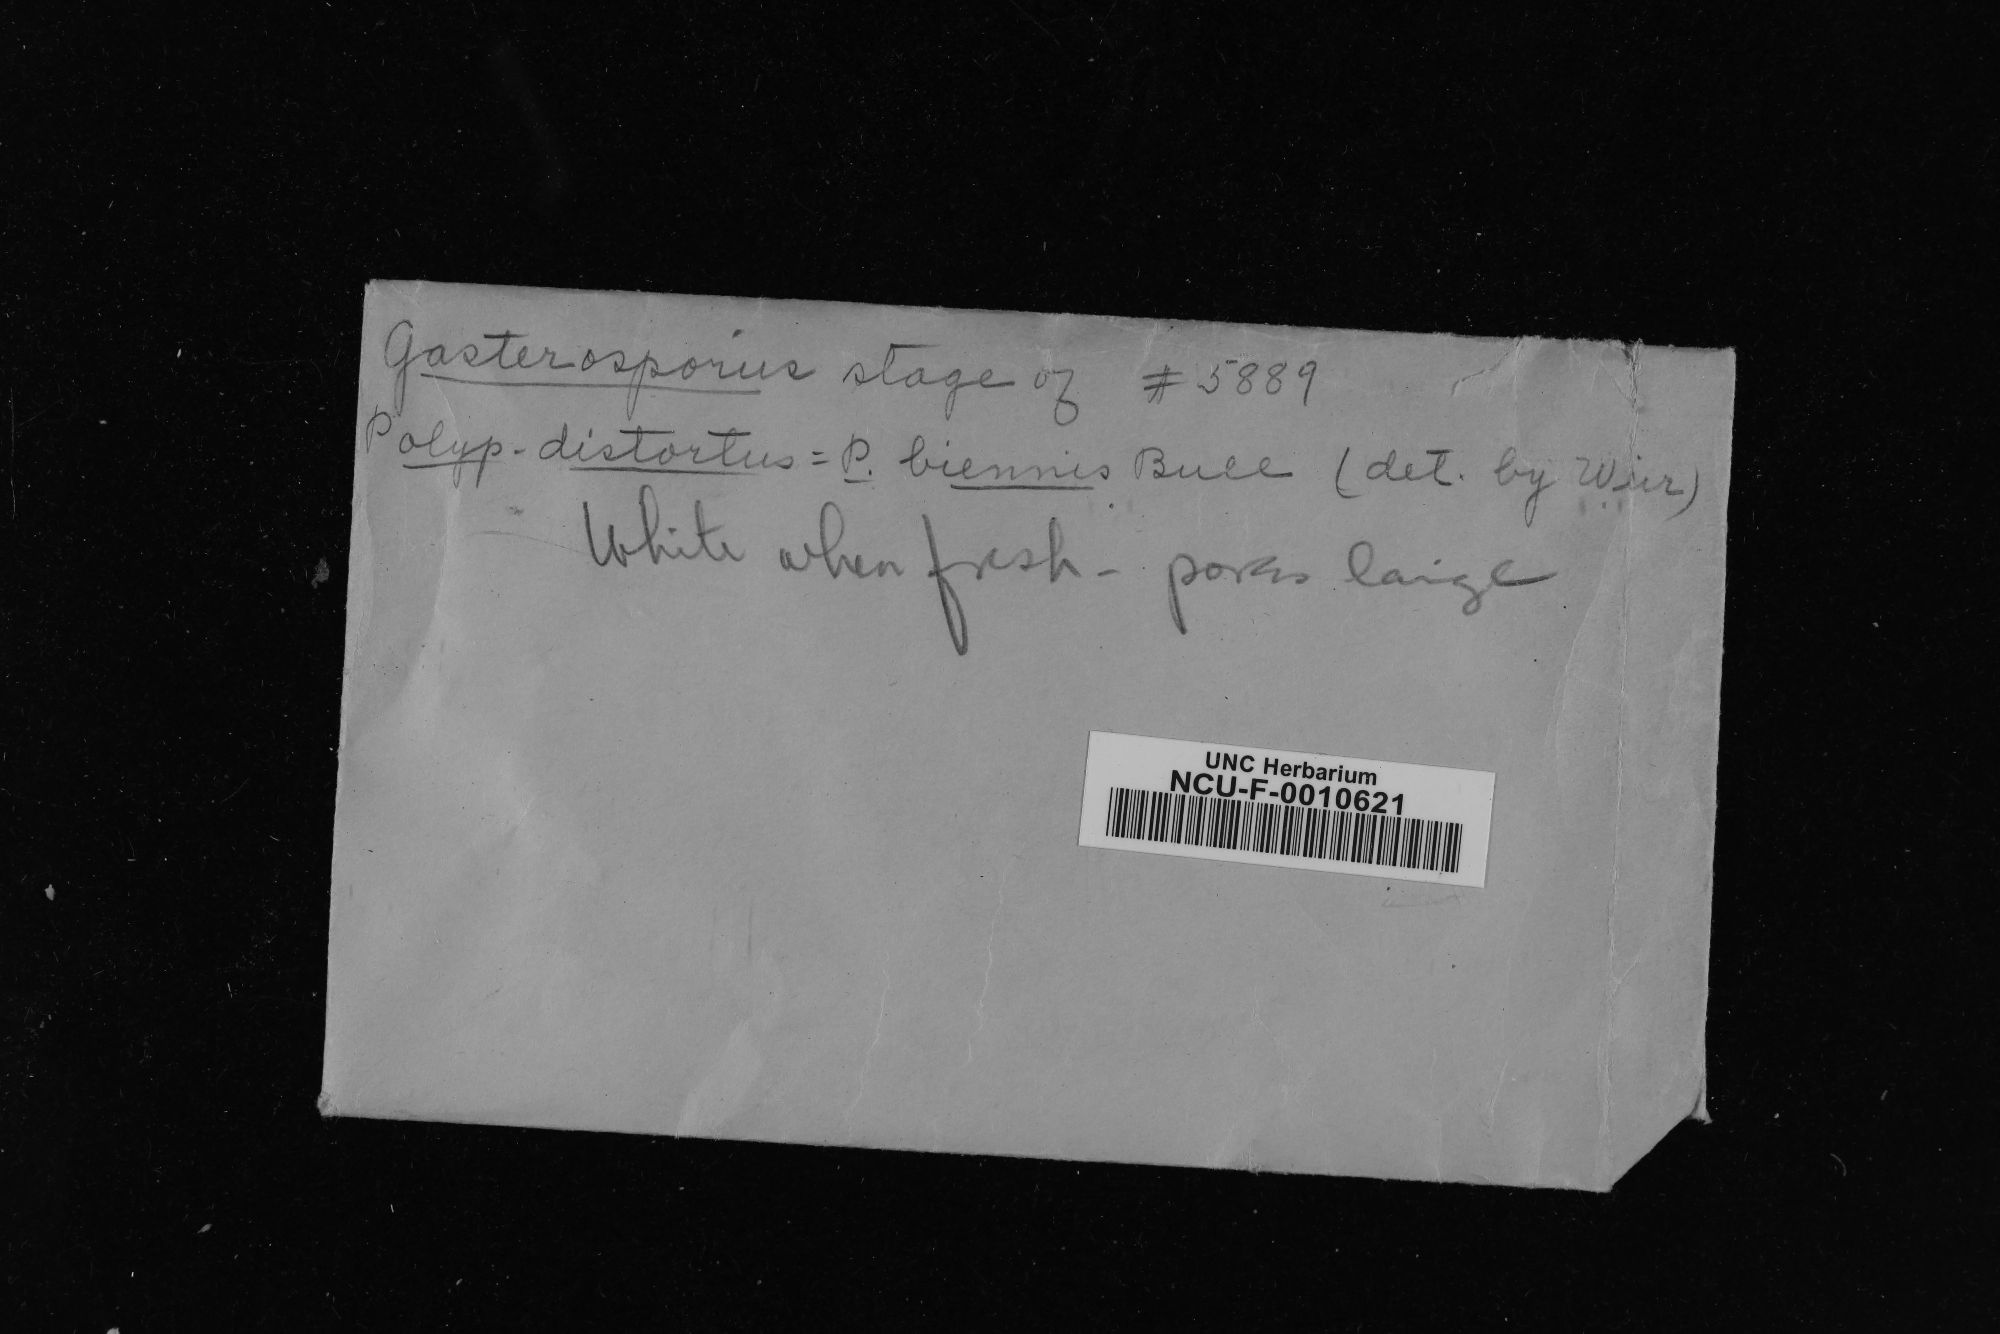 Gasterosporius stage of # 5889
Polyp. distortus = P. biennis Bull (det. by Weir)
White when fresh - pores large
UNC Herbarium
NCU-F-0010621